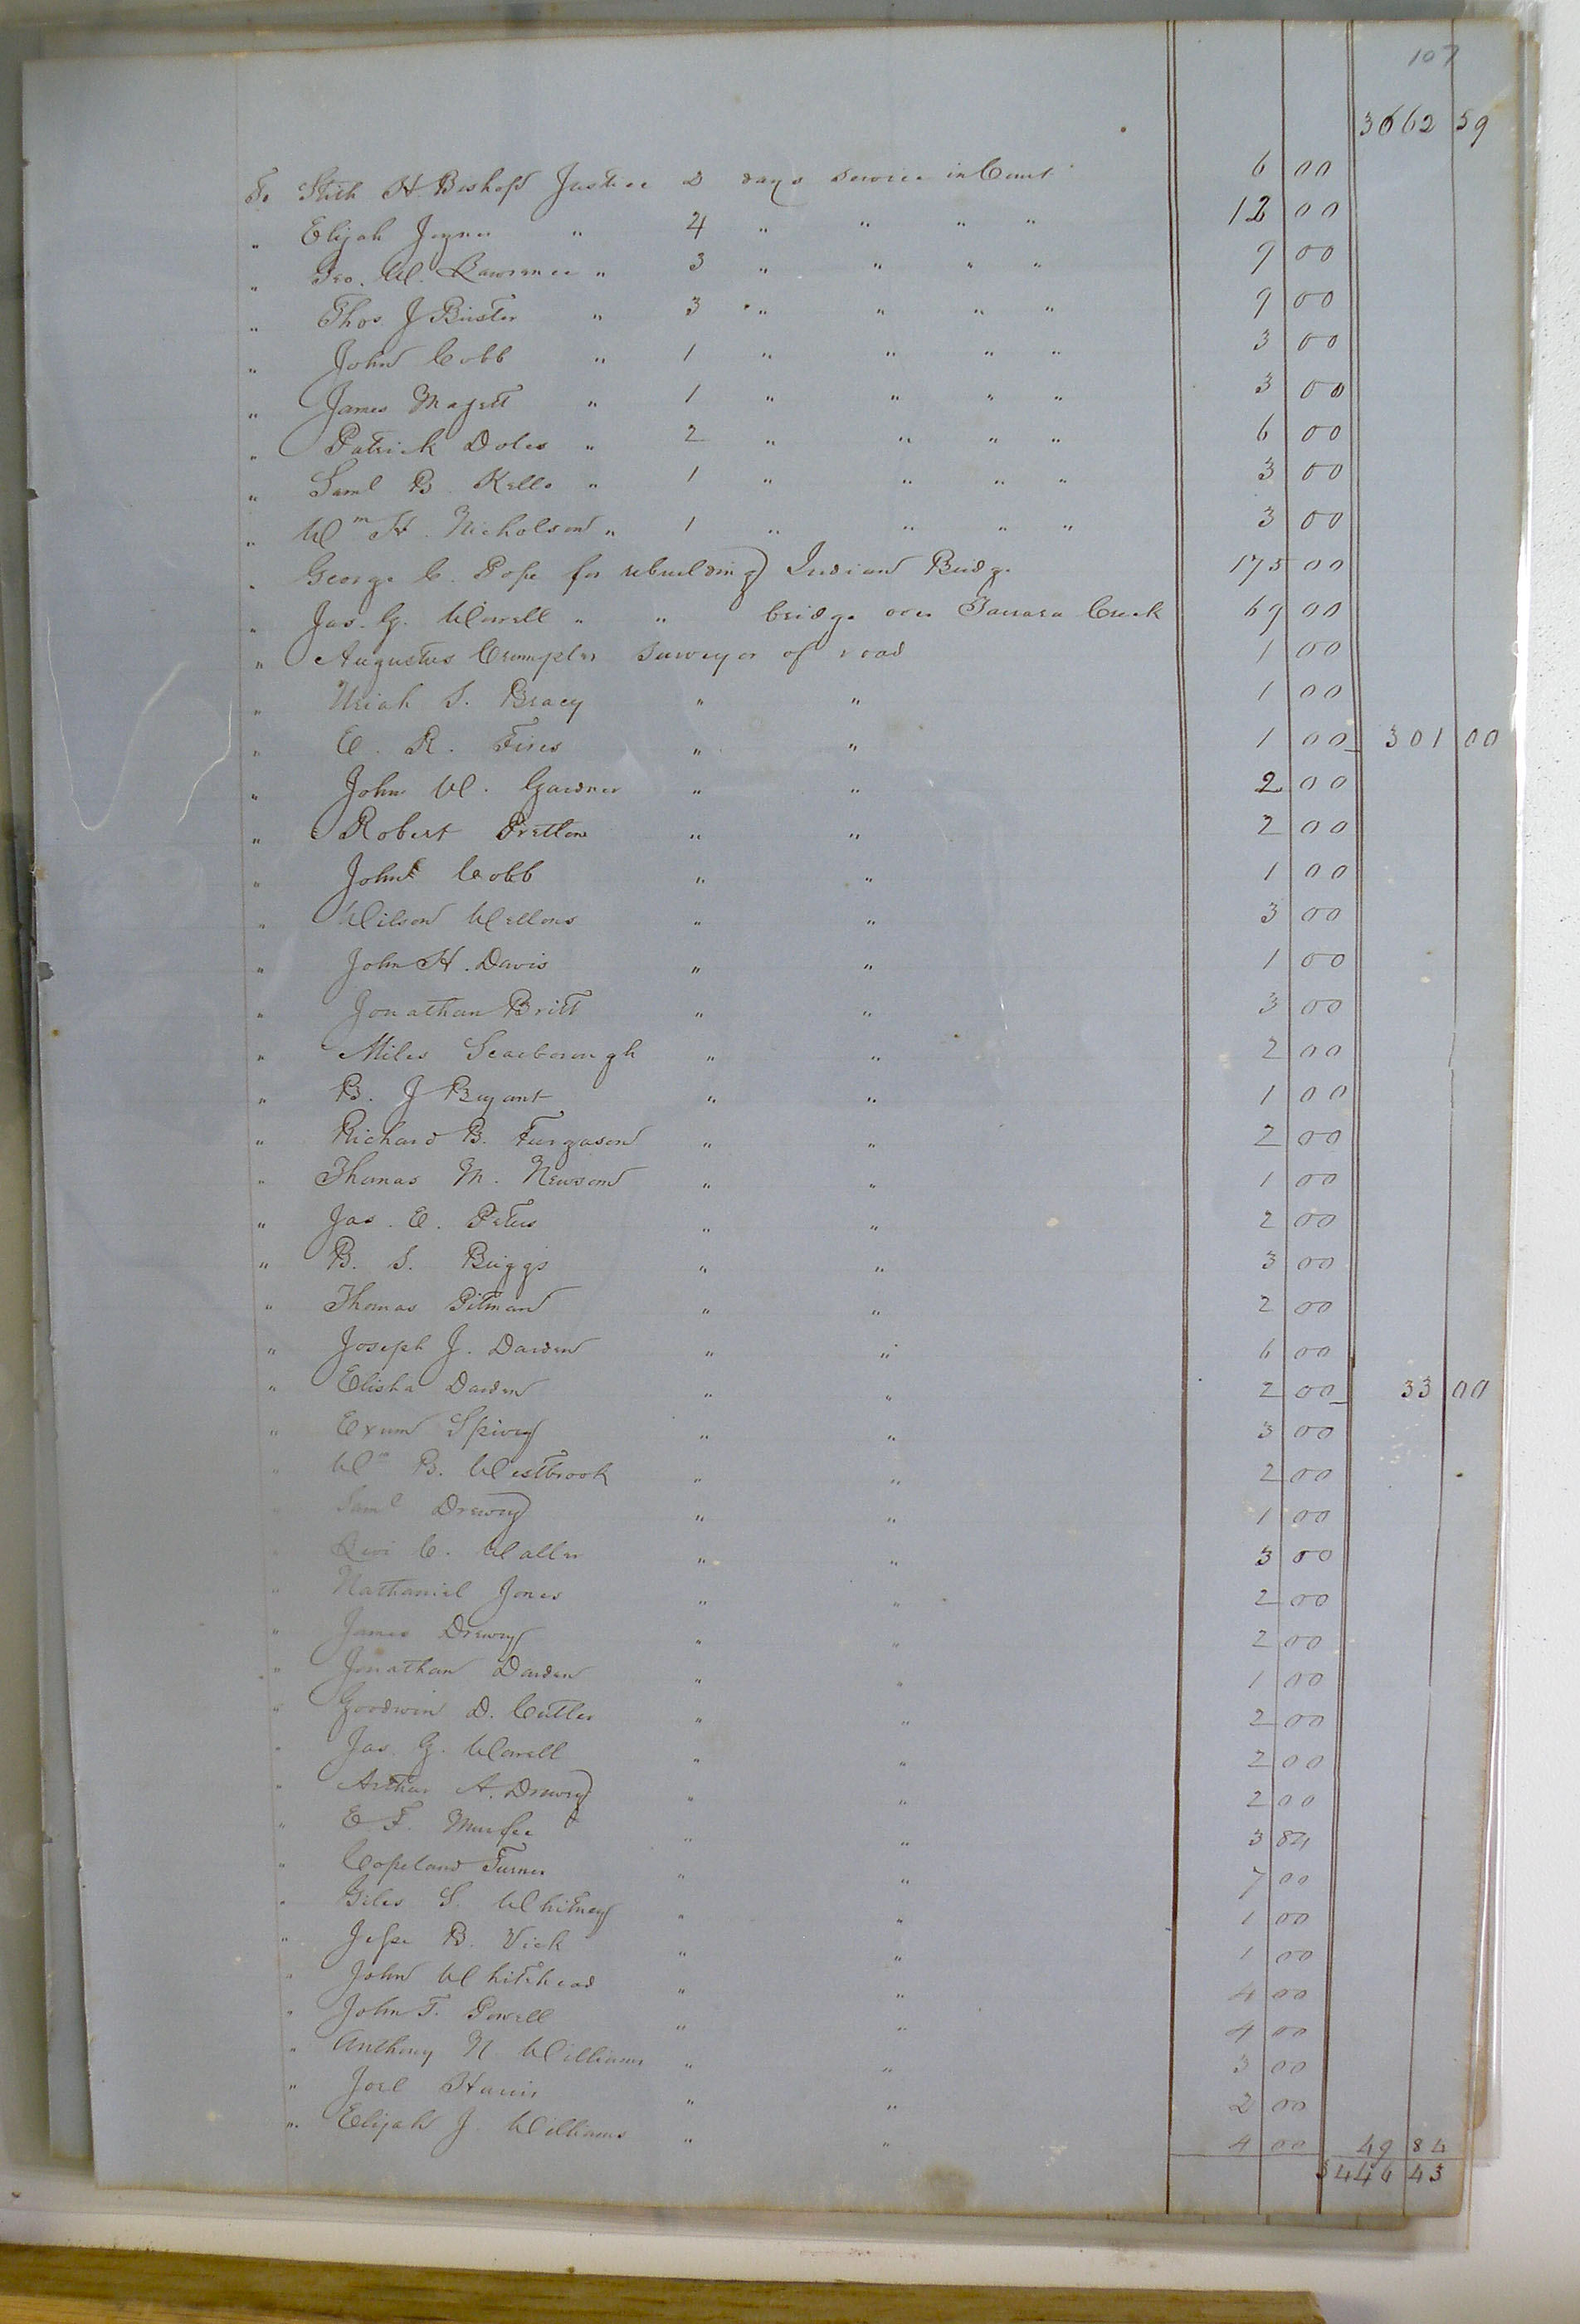 107
3662 59
To Stith H Bishop Justice 2 days service in Court 6 00
" Elijah Joyner " 4 " " " " 12 00
" Geo. W. Lawrence " 3 " " " " 9 00
" Thos J Bister " 3 " " " " 9 00
" John Cobb " 1 " " " " 3 00
" James Magett " 1 " " " " 3 00
" Patrick Doles " 2 " " " " 6 00
" Saml B Kello " 1 " " " " 3 00
" Wm H. Nicholson " 1 " " " " 3 00
" George C. Pope for rebuilding Indian Bridge 175 00
" Jas. G. Worrell " " bridge over Tarrara Creek 69 00
" Augustus Crumpler surveyor of road 1 00
" Uriah S. Bracy " " 1 00
" E. R. Fires " " 1 00 301 00
" John W. Gardner " " 2 00
" Robert Pretlow " " 2 00
" John Cobb " " 1 00
" Wilson Wellons " " 3 00
" John H. Davis " " 1 00
" Jonathan Britt " " 3 00
" Miles Scarborough " " 2 00
" B. J Bryant " " 1 00
" Richard B. Furgason " " 2 00
" Thomas M. Newsom " " 1 00
" Jas. E. Peters " " 2 00
" B. S. Briggs " " 3 00
" Thomas Pitman " " 2 00
" Joseph J. Darden " " 6 00
" Elisha Darden " " 2 00 33 00
" Exum Spivey " " 3 00
" Wm B. Westbrook " " 2 00
" Saml Drewry " " 1 00
" Levi C. Waller " " 3 00
" Nathaniel Jones " " 2 00
" James Drewry " " 2 00
" Jonathan Darden " " 1 00
" Goodwin D. Cutler " " 2 00
" Jas. G. Worrell " " 2 00
" Arthur A. Drewry " " 2 00
" E F. Murfee " " 3 84
" Copeland Turner " " 7 00
" Giles S. Whitney " " 1 00
" Jesse B. Vick " " 1 00
" John Whitehead " " 4 00
" John T. Powell " " 4 00
" Anthony N. Williams " " 3 00
" Joel Harris " " 2 00
" Elijah J. Williams " " 4 00 49 84
$446 43